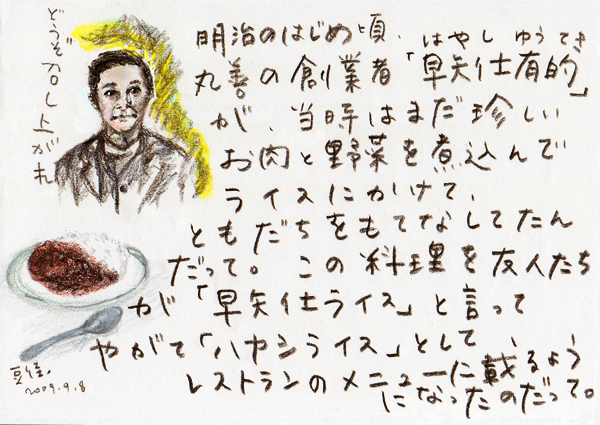 どうぞ召し上がれ
明治のはじめ頃、
はやし ゆうてき
丸善の創業者「早矢仕有的」
が、当時はまだ珍しい
お肉と野菜を煮込んで
ライスにかけて、
ともだちをもてなしてたん
だって。この料理を友人たち
が「早矢仕ライス」と言って
やがて「ハヤシライス」として、
レストランのメニューに載るよう
になったのだって。
2009.9.8